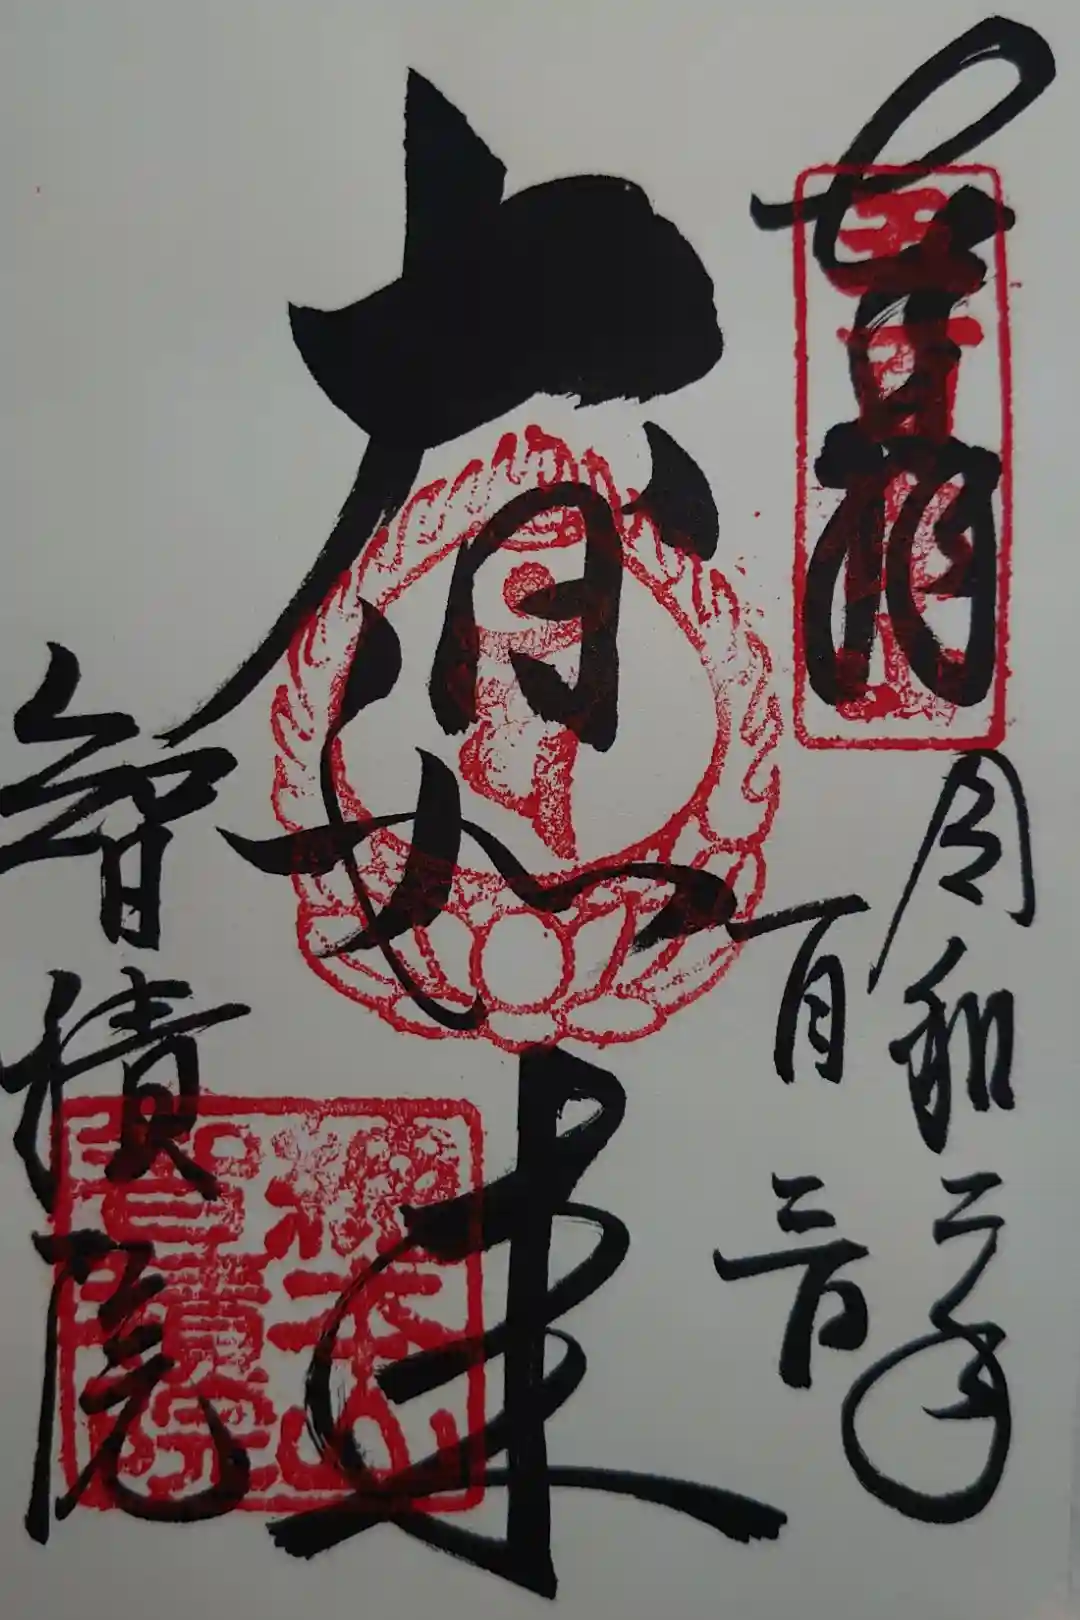 令和二年
一月三日
大日如来
智積院
総本山
智積院